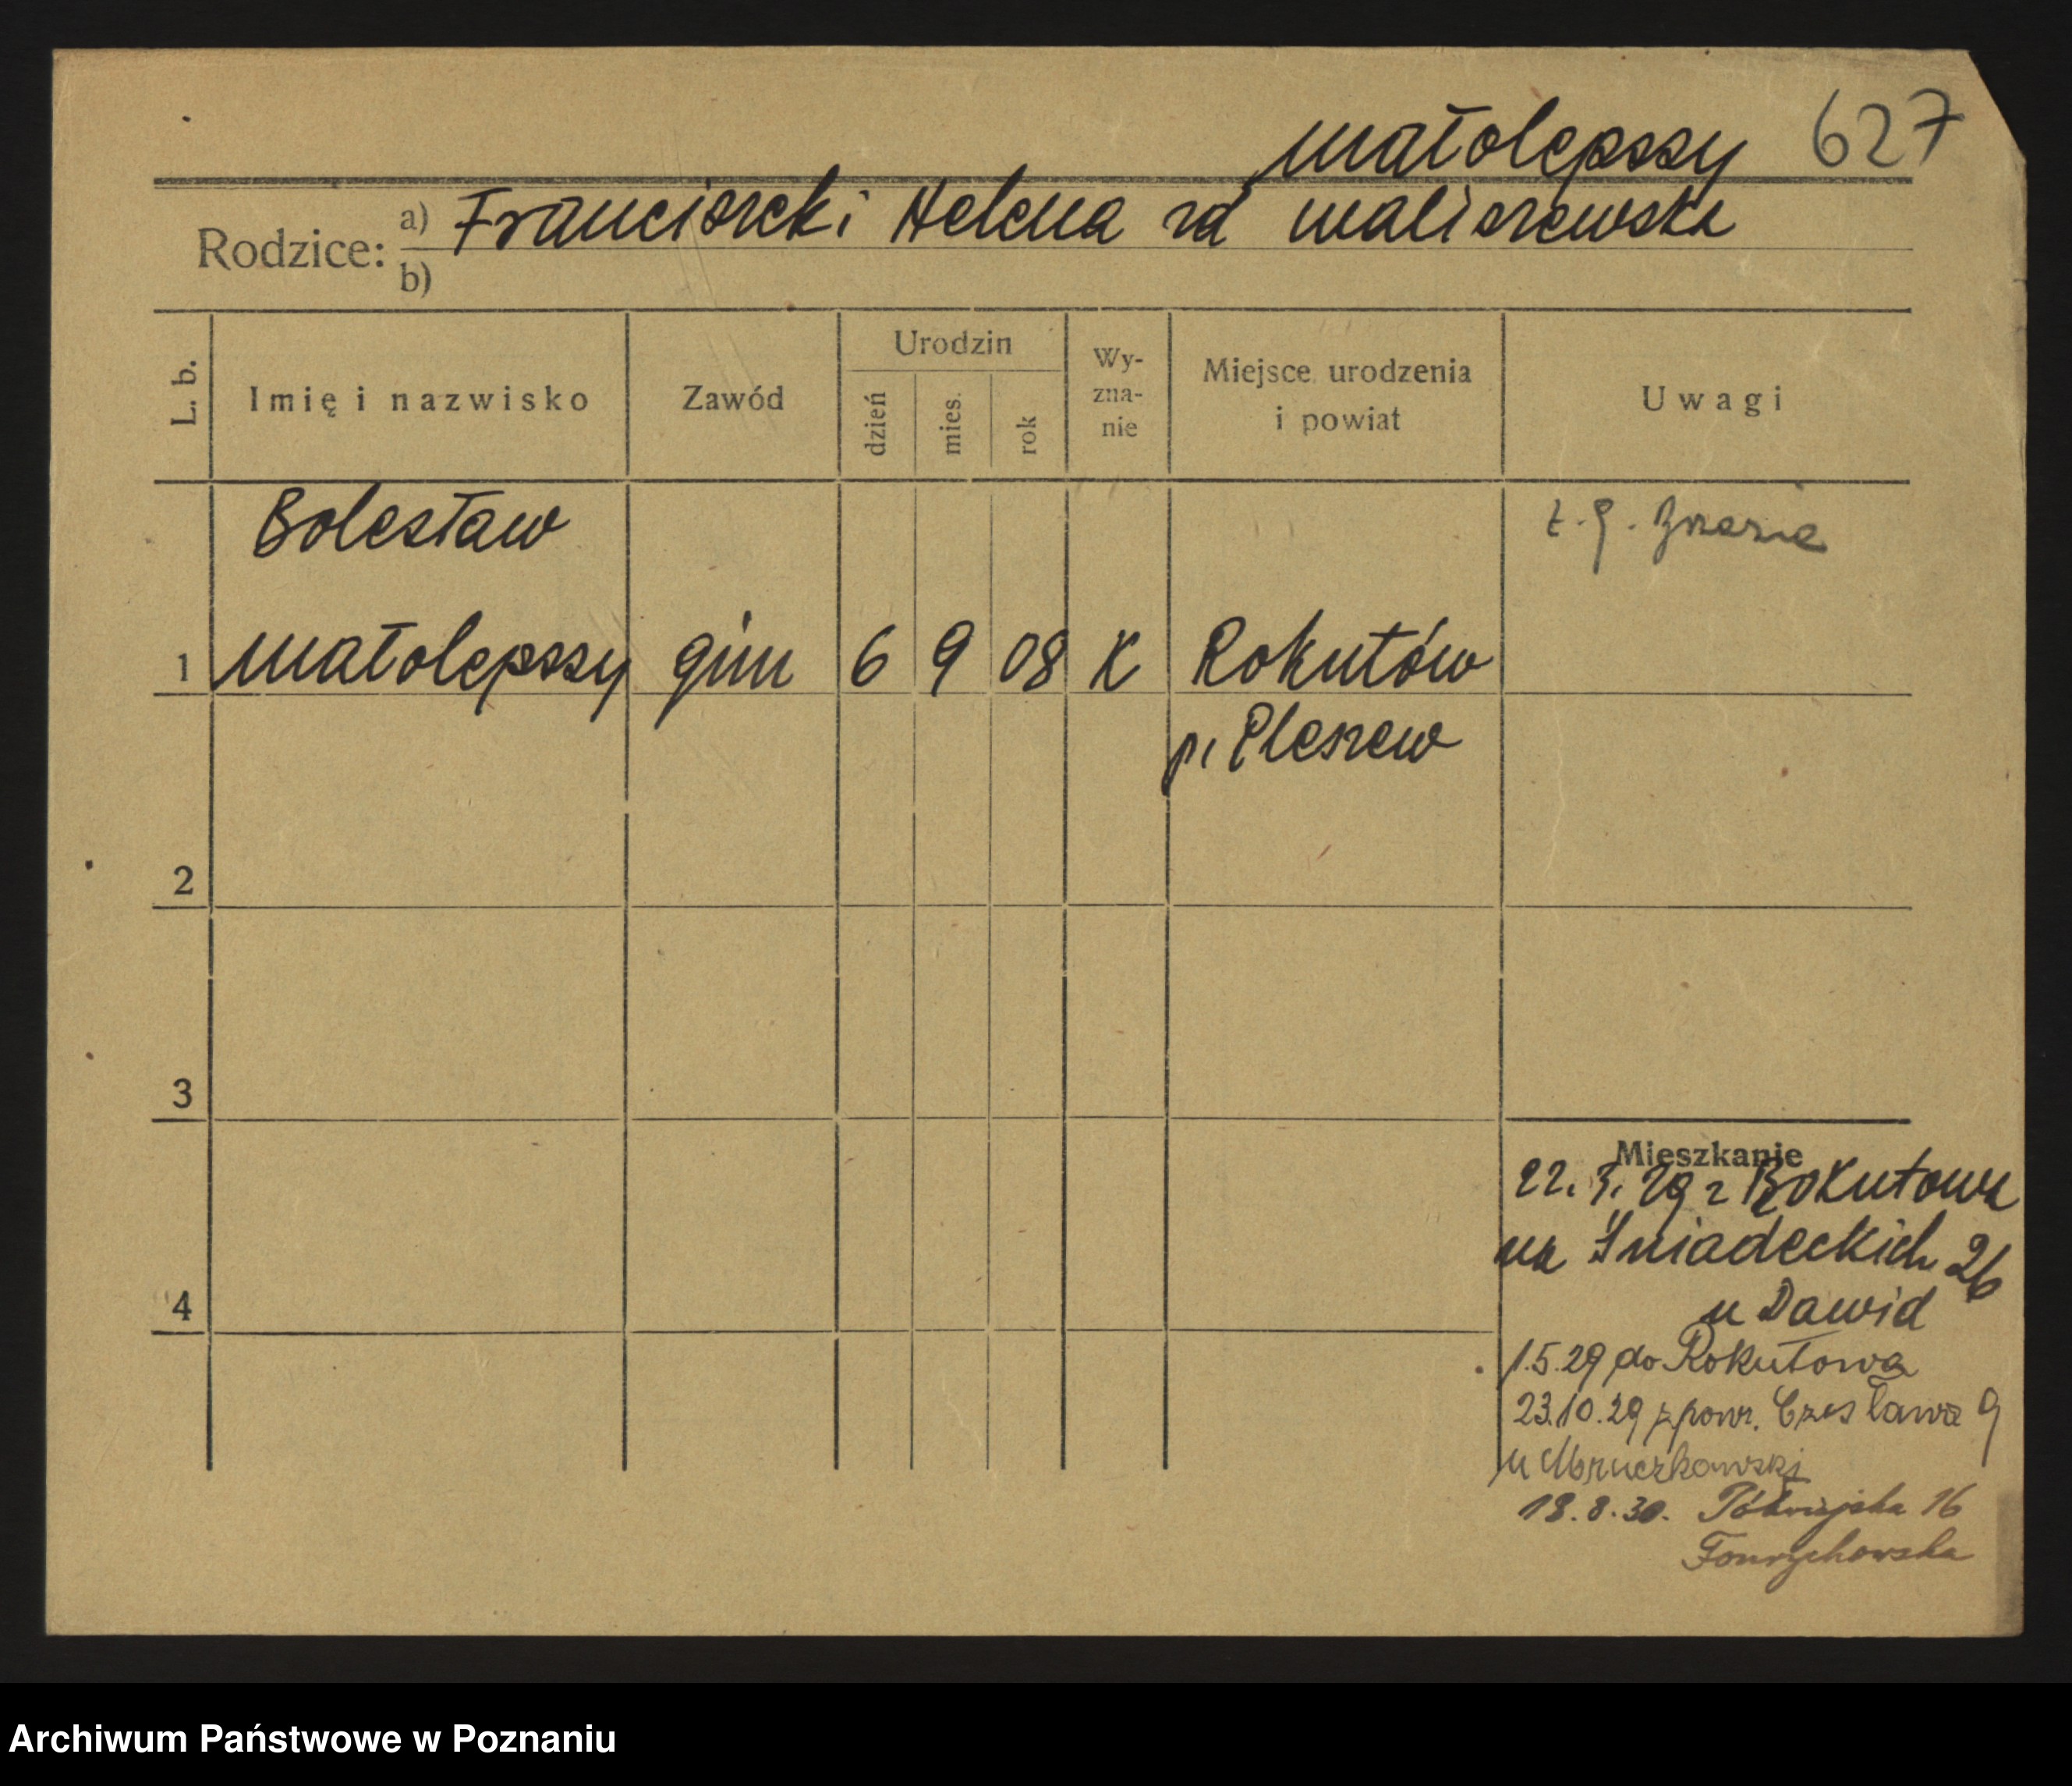 Małolepszy 627
Rodzice: a) Franciszek i Helena zd Maliszewska
b)
L. b. Imię i nazwisko Zawód Urodzin dzień mies. rok Wy-zna-nie Miejsce urodzenia i powiat Uwagi
Bolesław
1 Małolepszy gim 6 9 08 K Rokutów
p. Pleszew
2
3
4
Mieszkanie
22. 3. 29 z Rokutowa
na Śniadeckich 26
u Dawid
1.5.29 do Rokutowa
23.10.29 z pow. Czesława 9
u Mruczkowski
18.8.30. Półwiejska 16
Archiwum Państwowe w Poznaniu